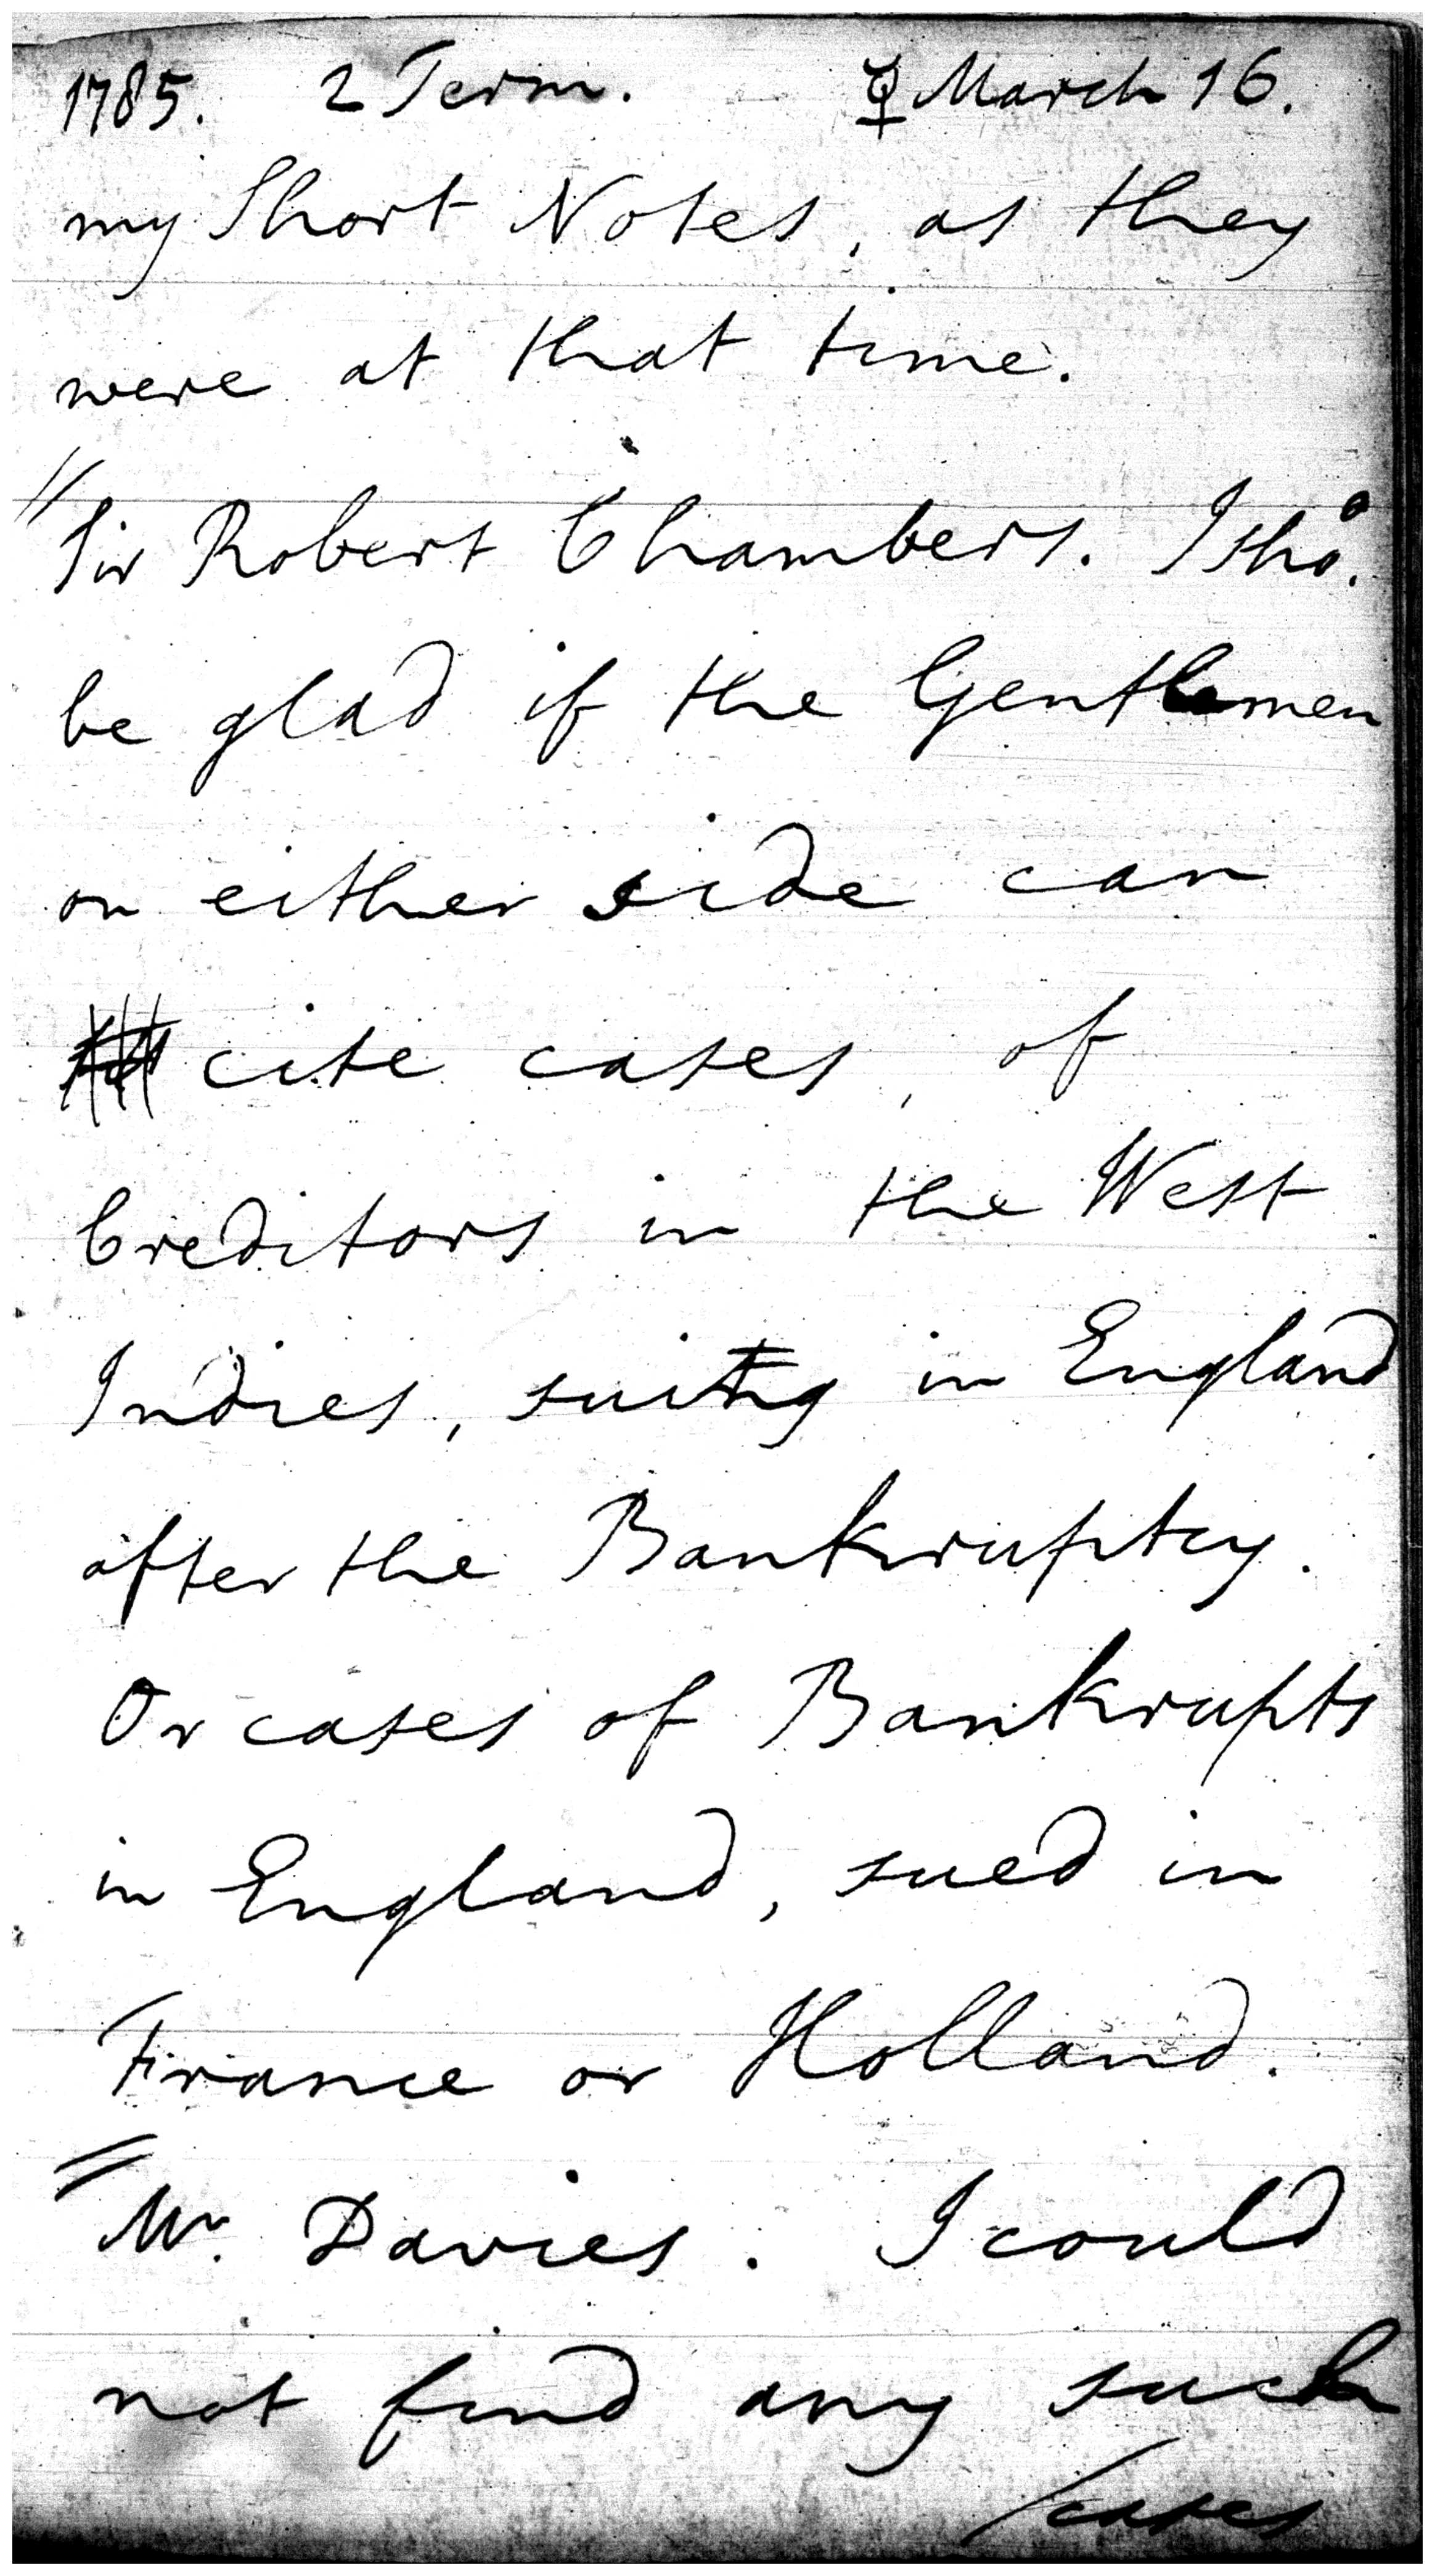 1785. 2 Term. ☿ March 16.
my Short Notes, as they
were at that time.
"Sir Robert Chambers. I shd.
be glad if the Gentlemen
on either side can
cite cases, of
Creditors in the West
Indies, suing in England
after the Bankruptcy.
Or cases of Bankrupts
in England, sued in
France or Holland.
"Mr. Davies. I could
not find any such
/cases